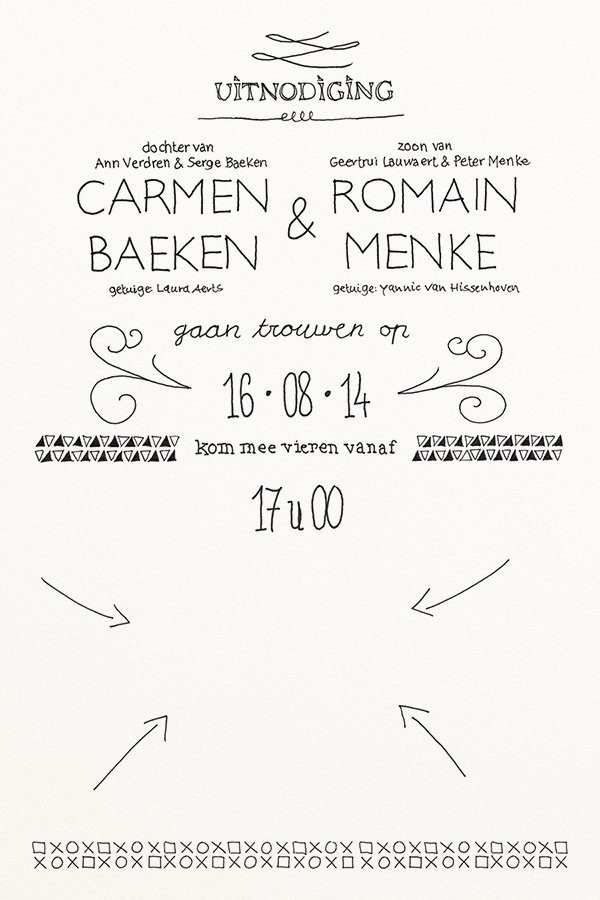 UITNODIGING
dochter van
Ann Verdren & Serge Baeken
CARMEN
BAEKEN
getuige: Laura Aerts
&
zoon van
Geertrui Lauwaert & Peter Menke
ROMAIN
MENKE
getuige: Yannic Van Hissenhoven
gaan trouwen op
16 · 08 · 14
kom mee vieren vanaf
17u00